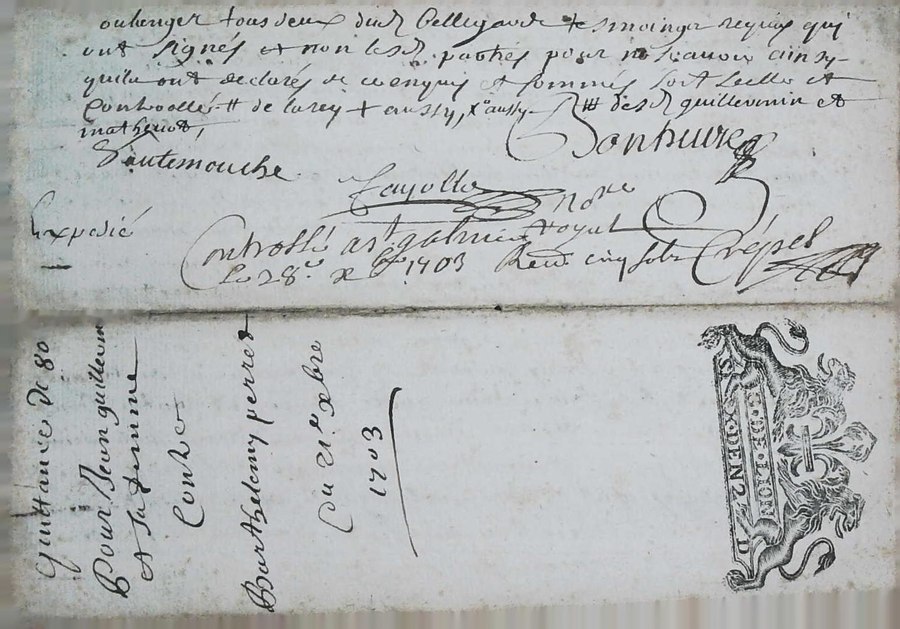 oulenger tous deux dud Bellegarde tesmoings requis qui
ont signés et non lesd parties pour ne scavoir ainsy
quils ont declarés de ce enquis et sommés soit scellé et
Controollé # de larey + aussy, x aussy # desd guillermin et
mathevot,
Bonhure
Hautemouche
Cayotte nore
Expedié
Controllé a st galmier
le 28e xbre 1703 Receu cinq sols Crépet
quittance de 80
Pour Jean guillermin
et sa femme
Contre
Barthelemy perret
Du 21e xbre
1703
G. DE LION
SIX DEN